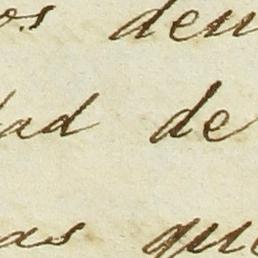 os den
dad de
as que